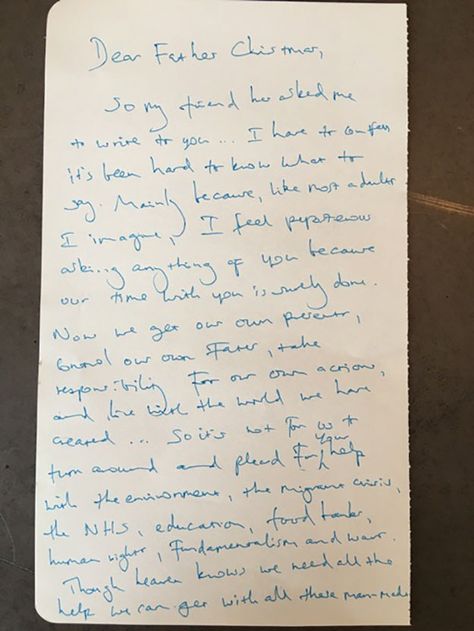 Dear Father Christmas,
So my friend has asked me
to write to you... I have to confess
it's been hard to know what to
say. Mainly because, like most adults
I imagine, I feel
asking anything of you because
our time with you is surely done.
Now we get our own presents,
control our own Fates, take
responsibility for our own actions,
and live with the world we have
created... So it's not for us to
turn around and plead for your help
with the environment, the migrant crisis,
the NHS, education, food banks,
human rights, Fundamentalism and war.
Though heaven knows we need all the
help we can get with all these man-made